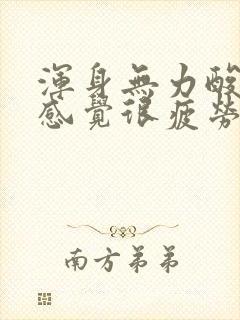 渾身無力酸
感覺很疲勞
南方弟弟